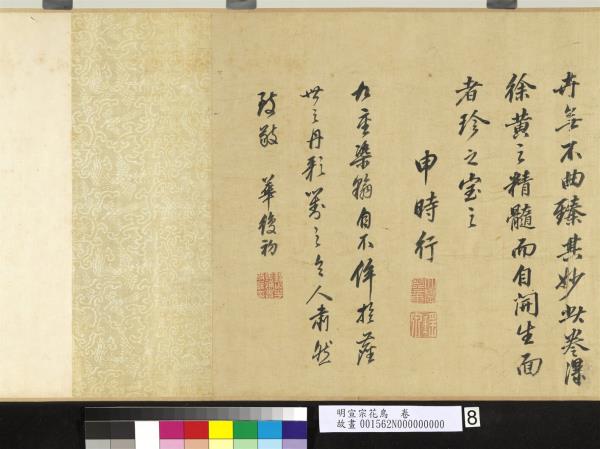 卉無不曲臻其妙此卷深
徐黃之精髓而自開生面
者珍之寶之
申時行
九重染翰自不侔於薩
世之丹彩對之令人肅然
致敬 華復初
明宣宗花鳥 卷
故畫 001562N000000000
8